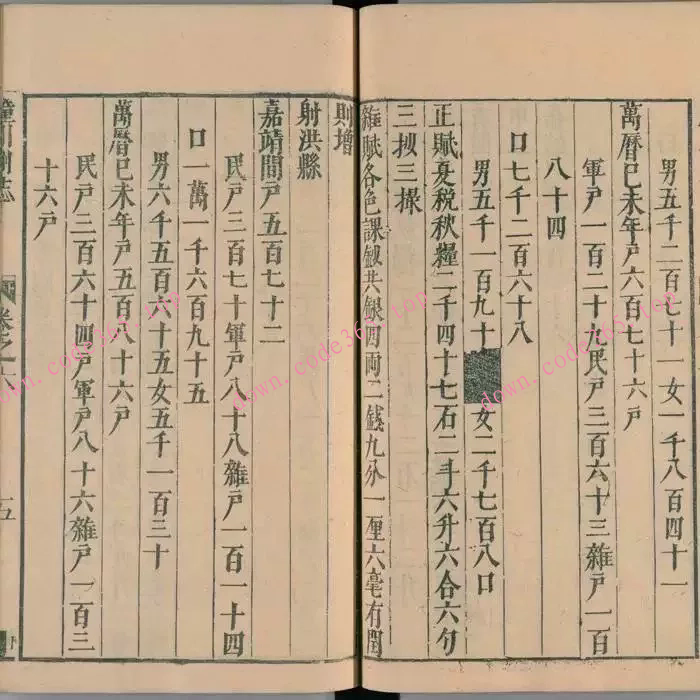 男五千二百七十一女一千八百四十一
萬曆巳未年户六百七十六户
軍户一百二十九民户三百六十三雜户一百
八十四
口七千二百六十八
男五千一百九十 女二千七百八口
正賦夏稅秋糧二千四十七石二斗六升六合六勺
三抄三撮
雜賦各色課鈔共銀四兩二錢九分一厘六毫有閏
則增
射洪縣
嘉靖間户五百七十二
民户三百七十軍户八十八雜户一百一十四
口一萬一千六百九十五
男六千五百六十五女五千一百三十
萬曆巳未年户五百八十六户
民户三百六十四户軍户八十六雜户一百三
十六户
卷之六
down.code365.top
down.code365.top